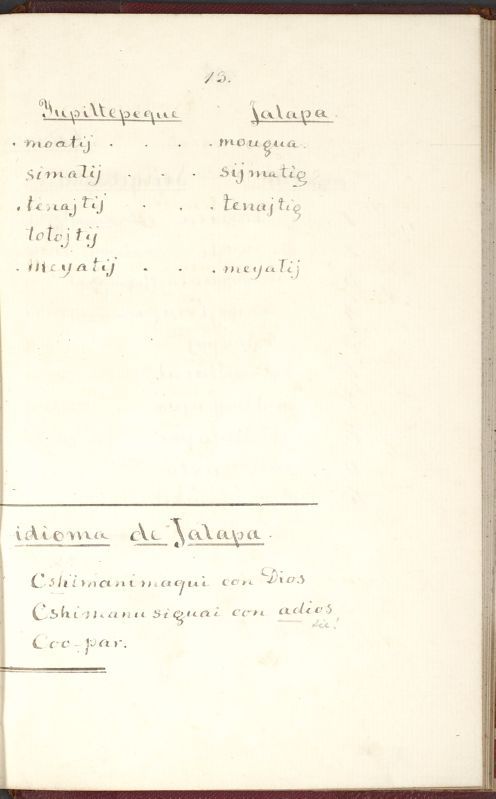 13.
Yupiltepeque Jalapa.
. moatij . . . . mougua.
simatij . . . sijmatig
. tenajtij . . . tenajtig
totojtij
. meyatij . . . meyatij
idioma de Jalapa.
Cshimanimaqui con Dios
Cshimanu siguai con adios
sic!
Coo-par.